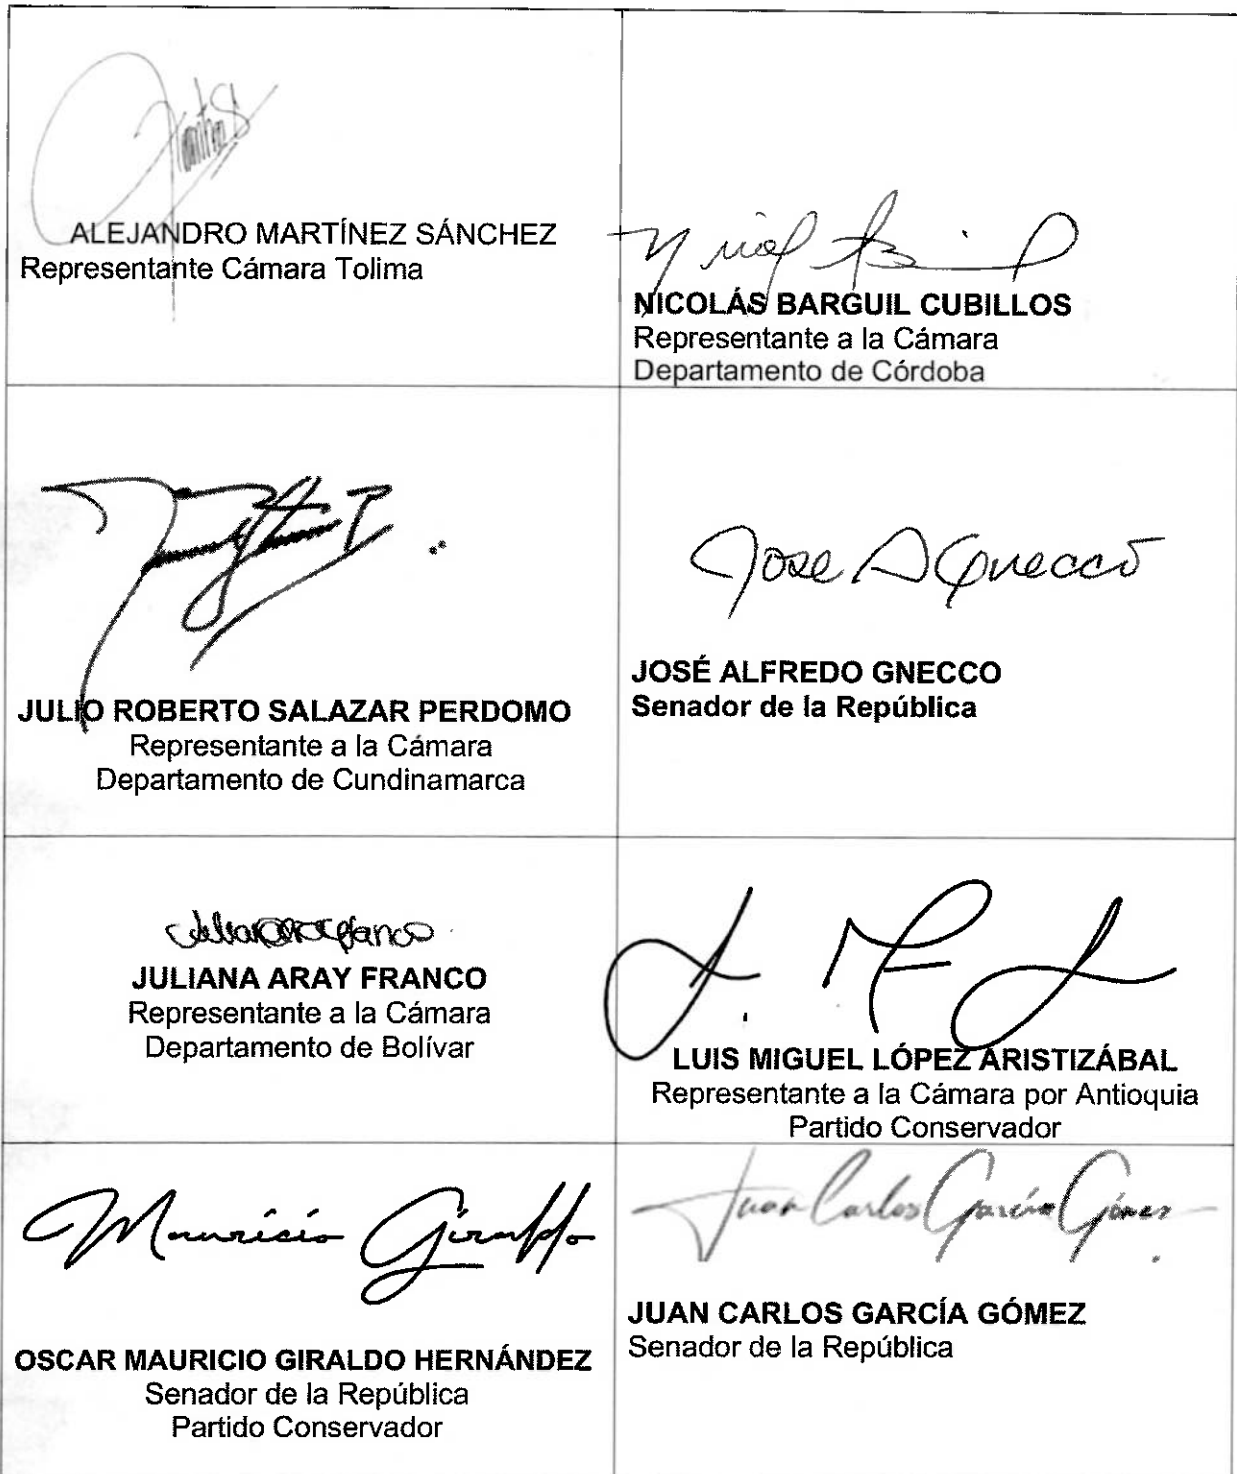 ALEJANDRO MARTÍNEZ SÁNCHEZ
Representante Cámara Tolima
NICOLÁS BARGUIL CUBILLOS
Representante a la Cámara
Departamento de Córdoba
JULIO ROBERTO SALAZAR PERDOMO
Representante a la Cámara
Departamento de Cundinamarca
Jose A Gnecco
JOSÉ ALFREDO GNECCO
Senador de la República
JULIANA ARAY FRANCO
Representante a la Cámara
Departamento de Bolívar
LUIS MIGUEL LÓPEZ ARISTIZÁBAL
Representante a la Cámara por Antioquia
Partido Conservador
Mauricio Giraldo
OSCAR MAURICIO GIRALDO HERNÁNDEZ
Senador de la República
Partido Conservador
Juan Carlos García Gómez
JUAN CARLOS GARCÍA GÓMEZ
Senador de la República